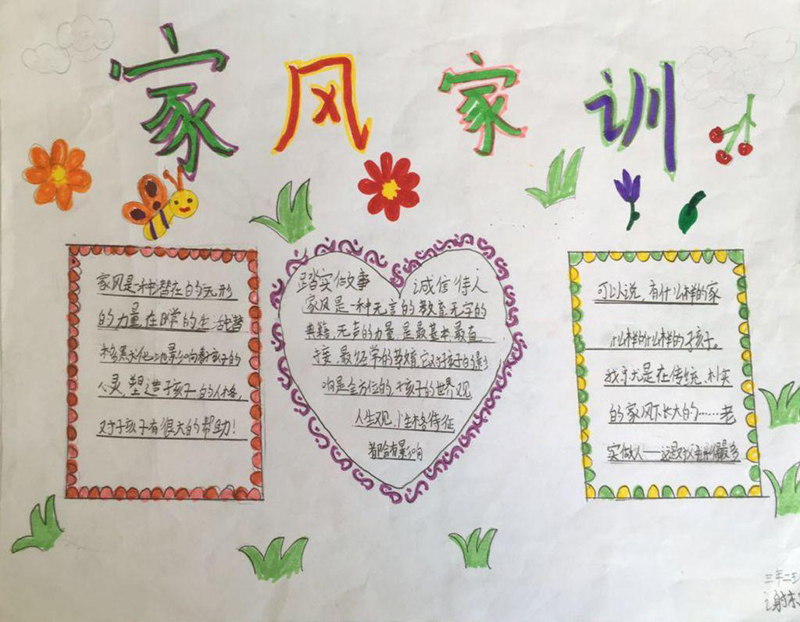 家风家训
家风是一种潜在的无形
的力量在日常的生活中潜
移默化地影响着孩子的
心灵,塑造孩子的人格,
对于孩子有很大的帮助!
踏实做事 诚信待人
家风是一种无言的教育,无字的
典籍,无声的力量,是最基本,最直
接,最经常的教育,它对孩子的影
响是全方位的,孩子的世界观
人生观,性格特征
都会有影响
可以说,有什么样的家
什么样的什么样的孩子。
我于是在传统、朴实
的家风下长大的……老
实做人——
三年二班